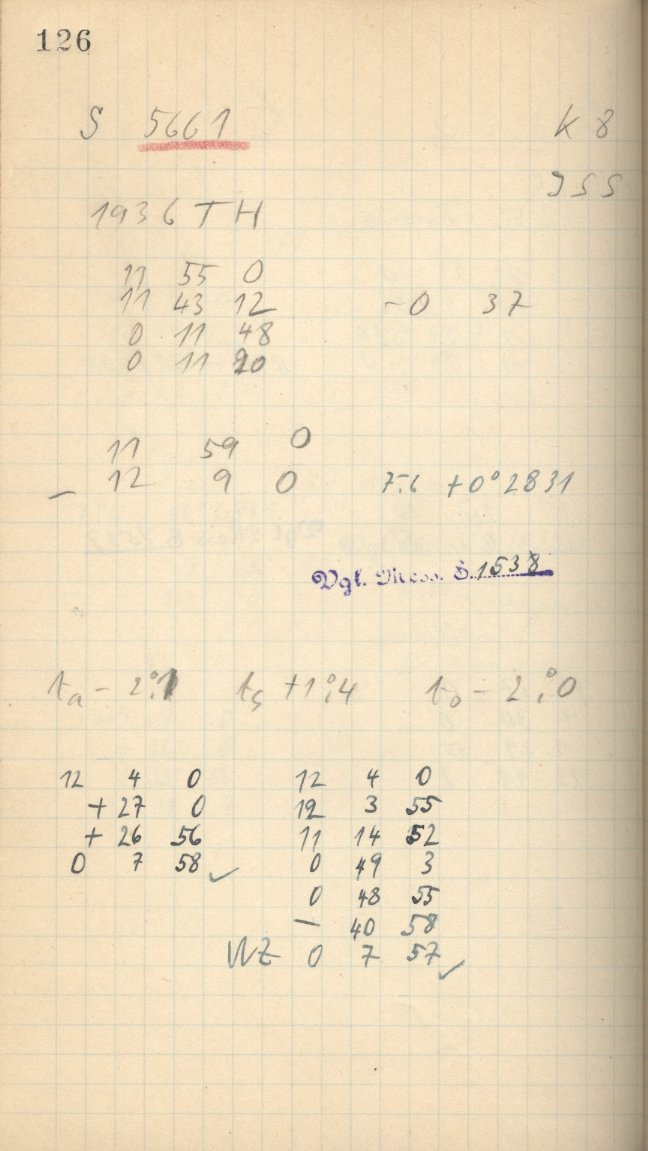 126
S 5661 K 8
JSS
1936 TH
11 55 0
11 43 12 -0 37
0 11 48
0 11 20
11 59 0
- 12 9 0 7.6 +0°2831
Vgl. Mess. S. 1538
ta - 2°.1 ts +1°.4 to - 2°.0
12 4 0 12 4 0
+ 27 0 12 3 55
+ 26 56 11 14 52
0 7 58 ✓ 0 49 3
0 48 55
- 40 58
WZ 0 7 57 ✓